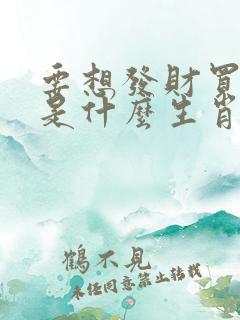 要想發財買
是什麼生肖
鶴不見
未經同意禁止轉載